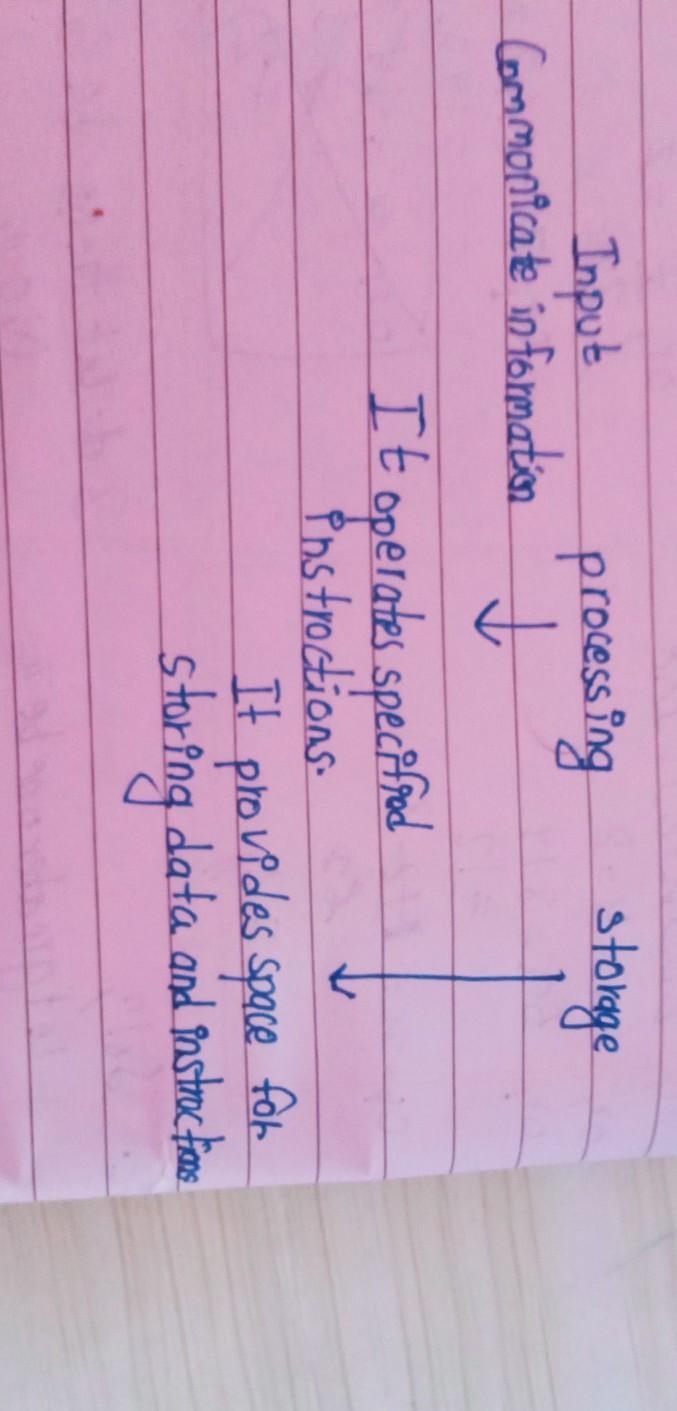 Input processing storage
Commonicate information
It operates specified
instroctions.
It provides space for
storing data and instructions